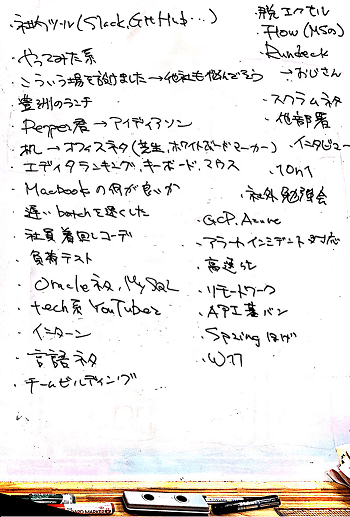 ・社内ツール(Slack, GitHub…)
・やってみた系
・こういう場を設けました→他社も悩んでそう
・豊洲のランチ
・Pepper君→アイディアソン
・机→オフィスネタ(芝生、ホワイトボードマーカー)
・エディタランキング、キーボード、マウス
・MacBookの何が良いか
・遅いbatchを速くした
・社員着回しコーデ
・負荷テスト
・Oracleネタ、MySQL
・tech系YouTuber
・インターン
・言語ネタ
・チームビルディング
・脱エクセル
・Flow (MSの)
・Rundeck
→おじさん
・スクラムネタ
・他部署
・インタビュー
・1on1
・社外勉強会
・GCP, Azure
・アラートインシデント対応
・高速化
・リモートワーク
・API基バン
・Springほげ